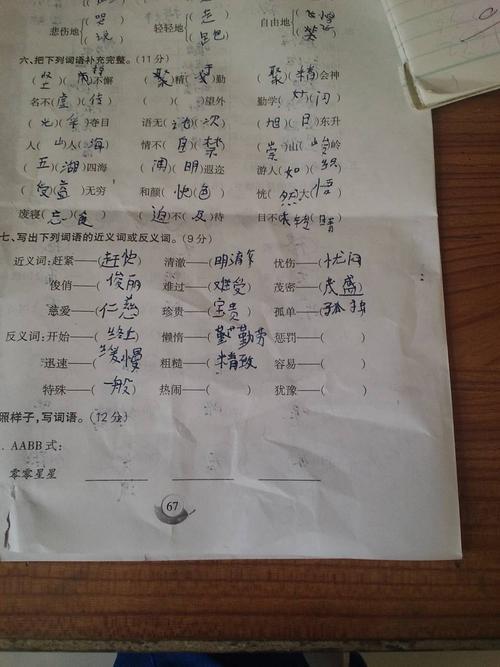 悲伤地{哭 说　轻轻地{走　自由地{
六、把下列词语补充完整。(11分)
(坚)(持)不懈　(聚)精()勤　(聚)(精)会神
名不(虚)(传)　()()望外　勤学()(问)
(光)(彩)夺目　语无(伦)(次)　(旭)(日)东升
人(山)人(海)　情不(自)(禁)　(崇)山()岭
(五)(湖)四海　()(明)遐迩　游人(如)(织)
(受)(益)无穷　和颜(悦)(色)　恍(然)大(悟)
废寝(忘)(食)　(迫)不(及)待　目不()(睛)
七、写出下列词语的近义词或反义词。(9分)
近义词:赶紧——(赶忙)　清澈——(明)　忧伤——(忧闷)
俊俏——(俊丽)　难过——(难受)　茂密——(茂盛)
慈爱——(仁慈)　珍贵——(宝贵)　孤单——(孤)
反义词:开始——(终止)　懒惰——(勤劳)　惩罚——()
迅速——(缓慢)　粗糙——(精致)　容易——()
特殊——(一般)　热闹——()　犹豫——()
照样子,写词语。(12分)
. AABB 式:
零零星星
67